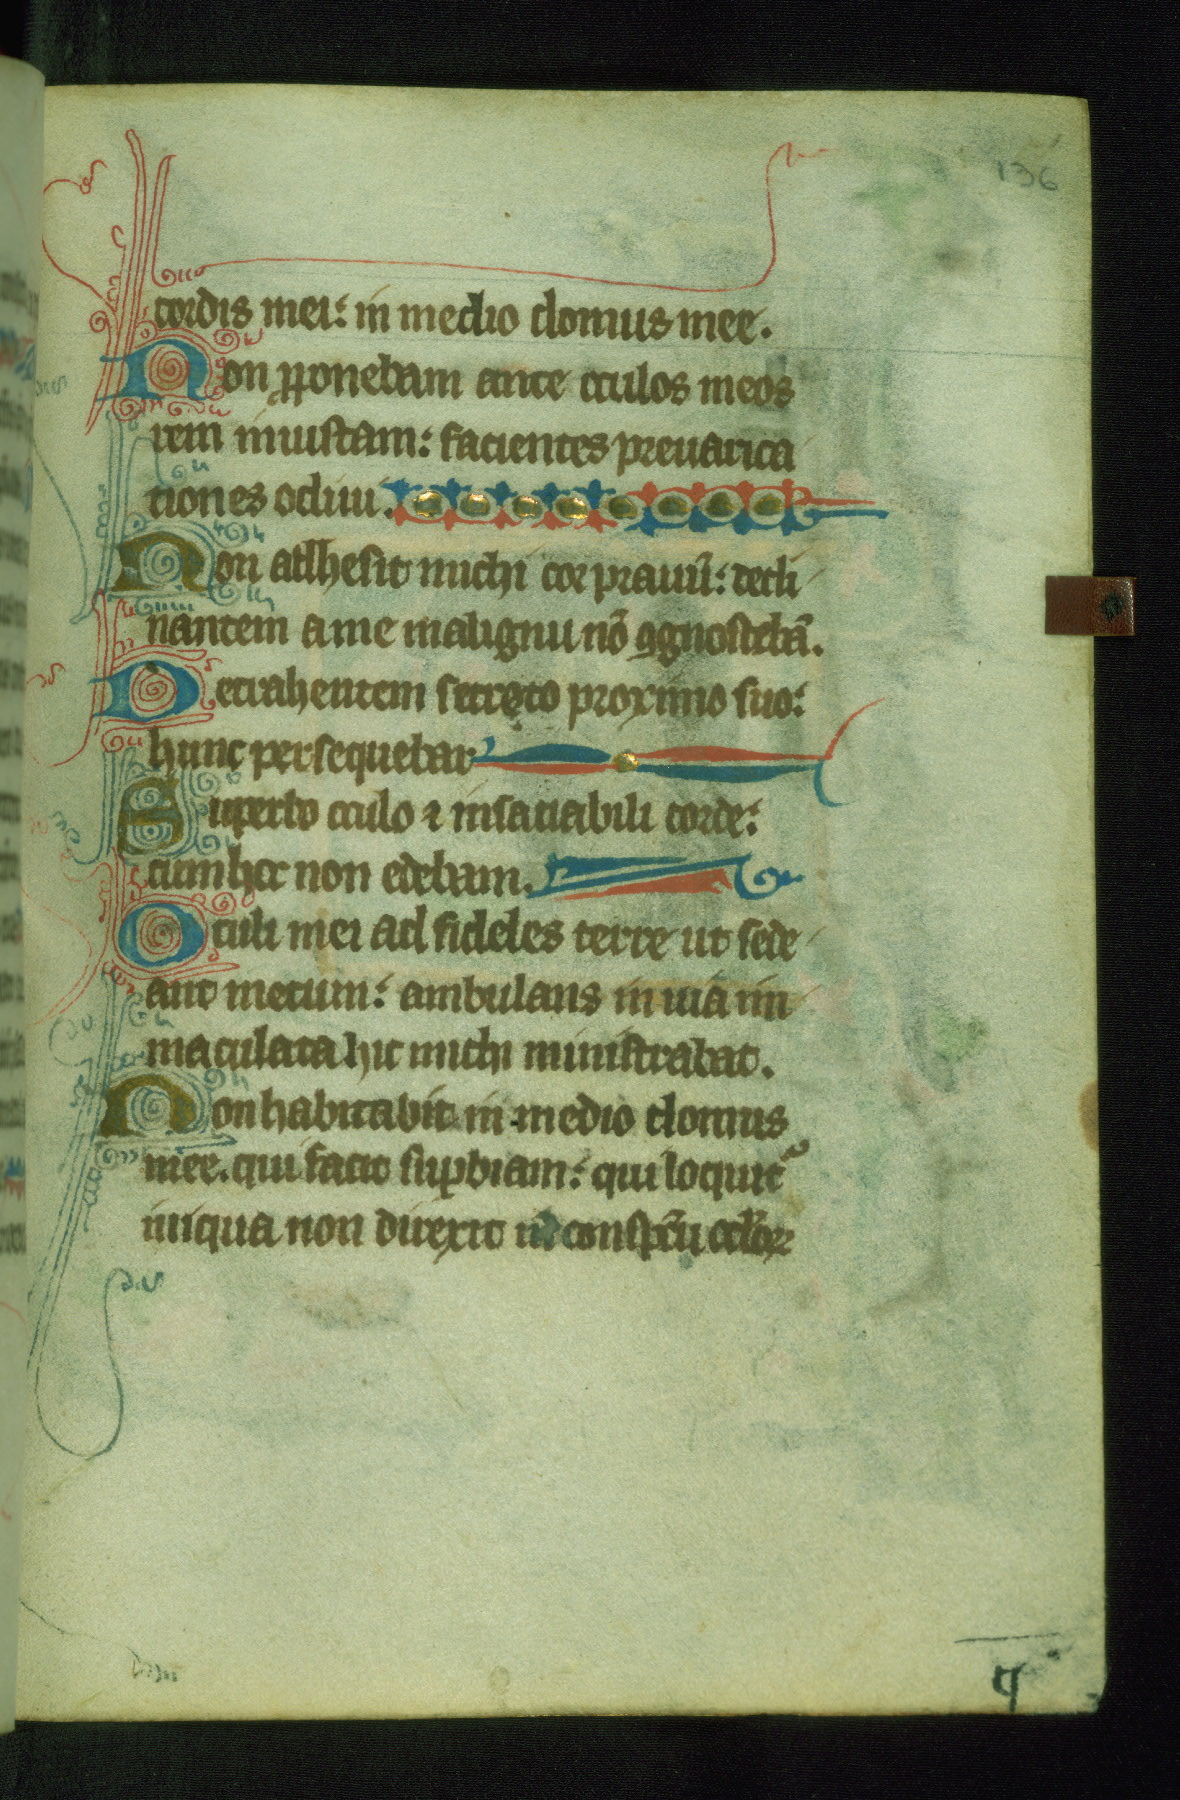 136
cordis mei: in medio domus mee.
Non p̱ponebam ante oculos meos
rem iniustam: facientes preuarica
tiones odiui.
Non adhesit michi cor prauū: decli
nantem a me malignū nō ꝯgnoscebā.
Detrahentem secreto proximo suo:
hunc persequebar
Superbo oculo ⁊ insatiabili corde:
cum hoc non edebam.
Oculi mei ad fideles terre ut sede
ant mecum: ambulans in uia im
maculata hic michi ministrabat.
Non habitabit in medio domus
mee. qui facit suꝑbiam: qui loquit᷑
iniqua non direxit in conspcū oculoꝝ